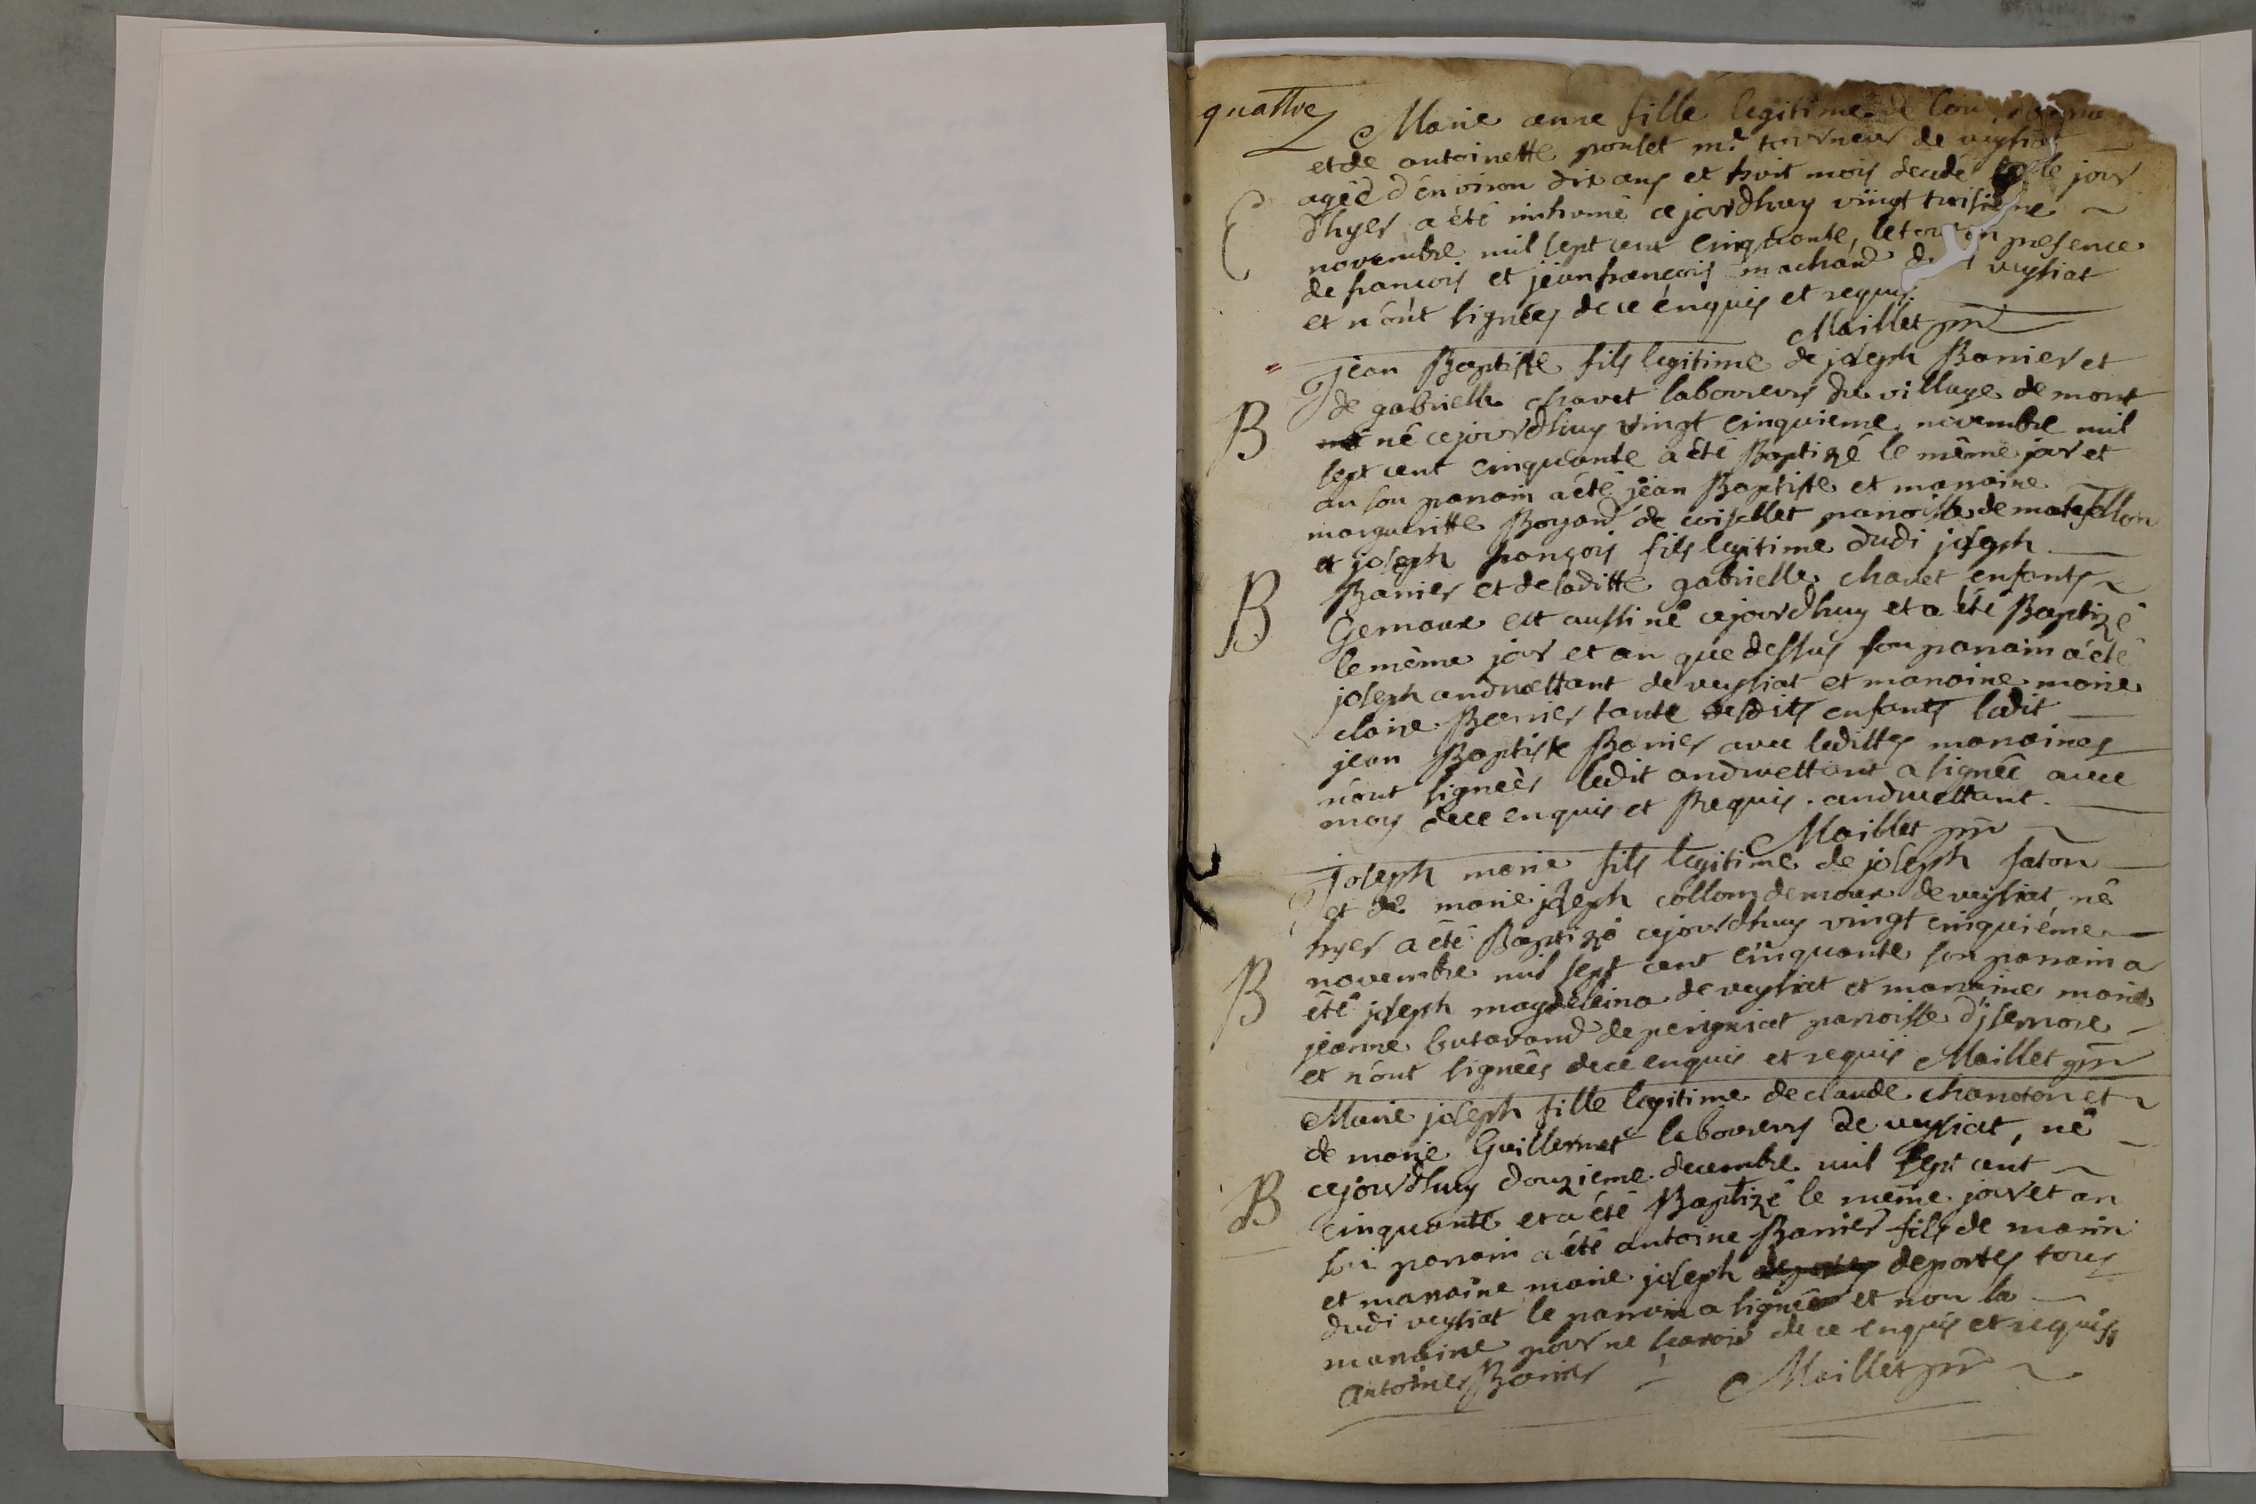 quattre
Marie anne fille legitime de
et de antoinette ponset md tourneur de veysiat
ageé d'environ dix ans et huit mois decedé le jour
E
d'hyer a été inhumé cejourdhuy vingt troisieme
novembre mil sept cent cinquante, le tout en presence
de francois et jean françois machard de veysiat
et n'ont signées de ce enquis et requis.
Maillet
jean Baptiste fils legitime de joseph Banier et
de gabrielle chavet laboureurs du village de mont
B
né cejourdhuy vingt cinquieme novembre mil
sept cent cinquante a été Baptizé le même jour et
an son parrain a été jean Baptiste et marraine
margueritte Boyard de coisellet paroisse de matafellon
et joseph françois fils legitime dudi joseph
B
Banier et de laditte gabrielle chavet enfants
Gemaux est aussi né cejourdhuy et a été Baptizé
le même jour et an que dessus son parrain a été
joseph andruettant de veysiat et marraine marie
claire Banier tante desdits enfants ledit
jean Baptiste Banier avec ledittes marraines
n'ont signeés ledit andruettant a signeé avec
moy de ce enquis et Requis. andruettant.
Maillet
joseph marie fils legitime de joseph faton
et de marie joseph collomb demeur de veysiat, né
hyer a été Baptizé cejourdhuy vingt cinquiéme
B
novembre mil sept cent cinquante son parrain a
été joseph magdeleina de veysiat et marraine marie
jeanne butavand de perignat paroisse d'jsernore
et n'ont signeés de ce enquis et requis Maillet
Marie joseph fille legitime de claude chanoton et
de marie Guillermet laboureurs de veysiat, né
cejourdhuy douzieme decembre mil sept cent
B
cinquante et a été Baptizé le même jour et an
son parrain a été antoine Banier fils de marin
et marraine marie joseph deportes tous
dudi veysiat le parrain a signeé et non la
marraine pour ne scavoir de ce enquis et requis
Antoine Banier
Maillet